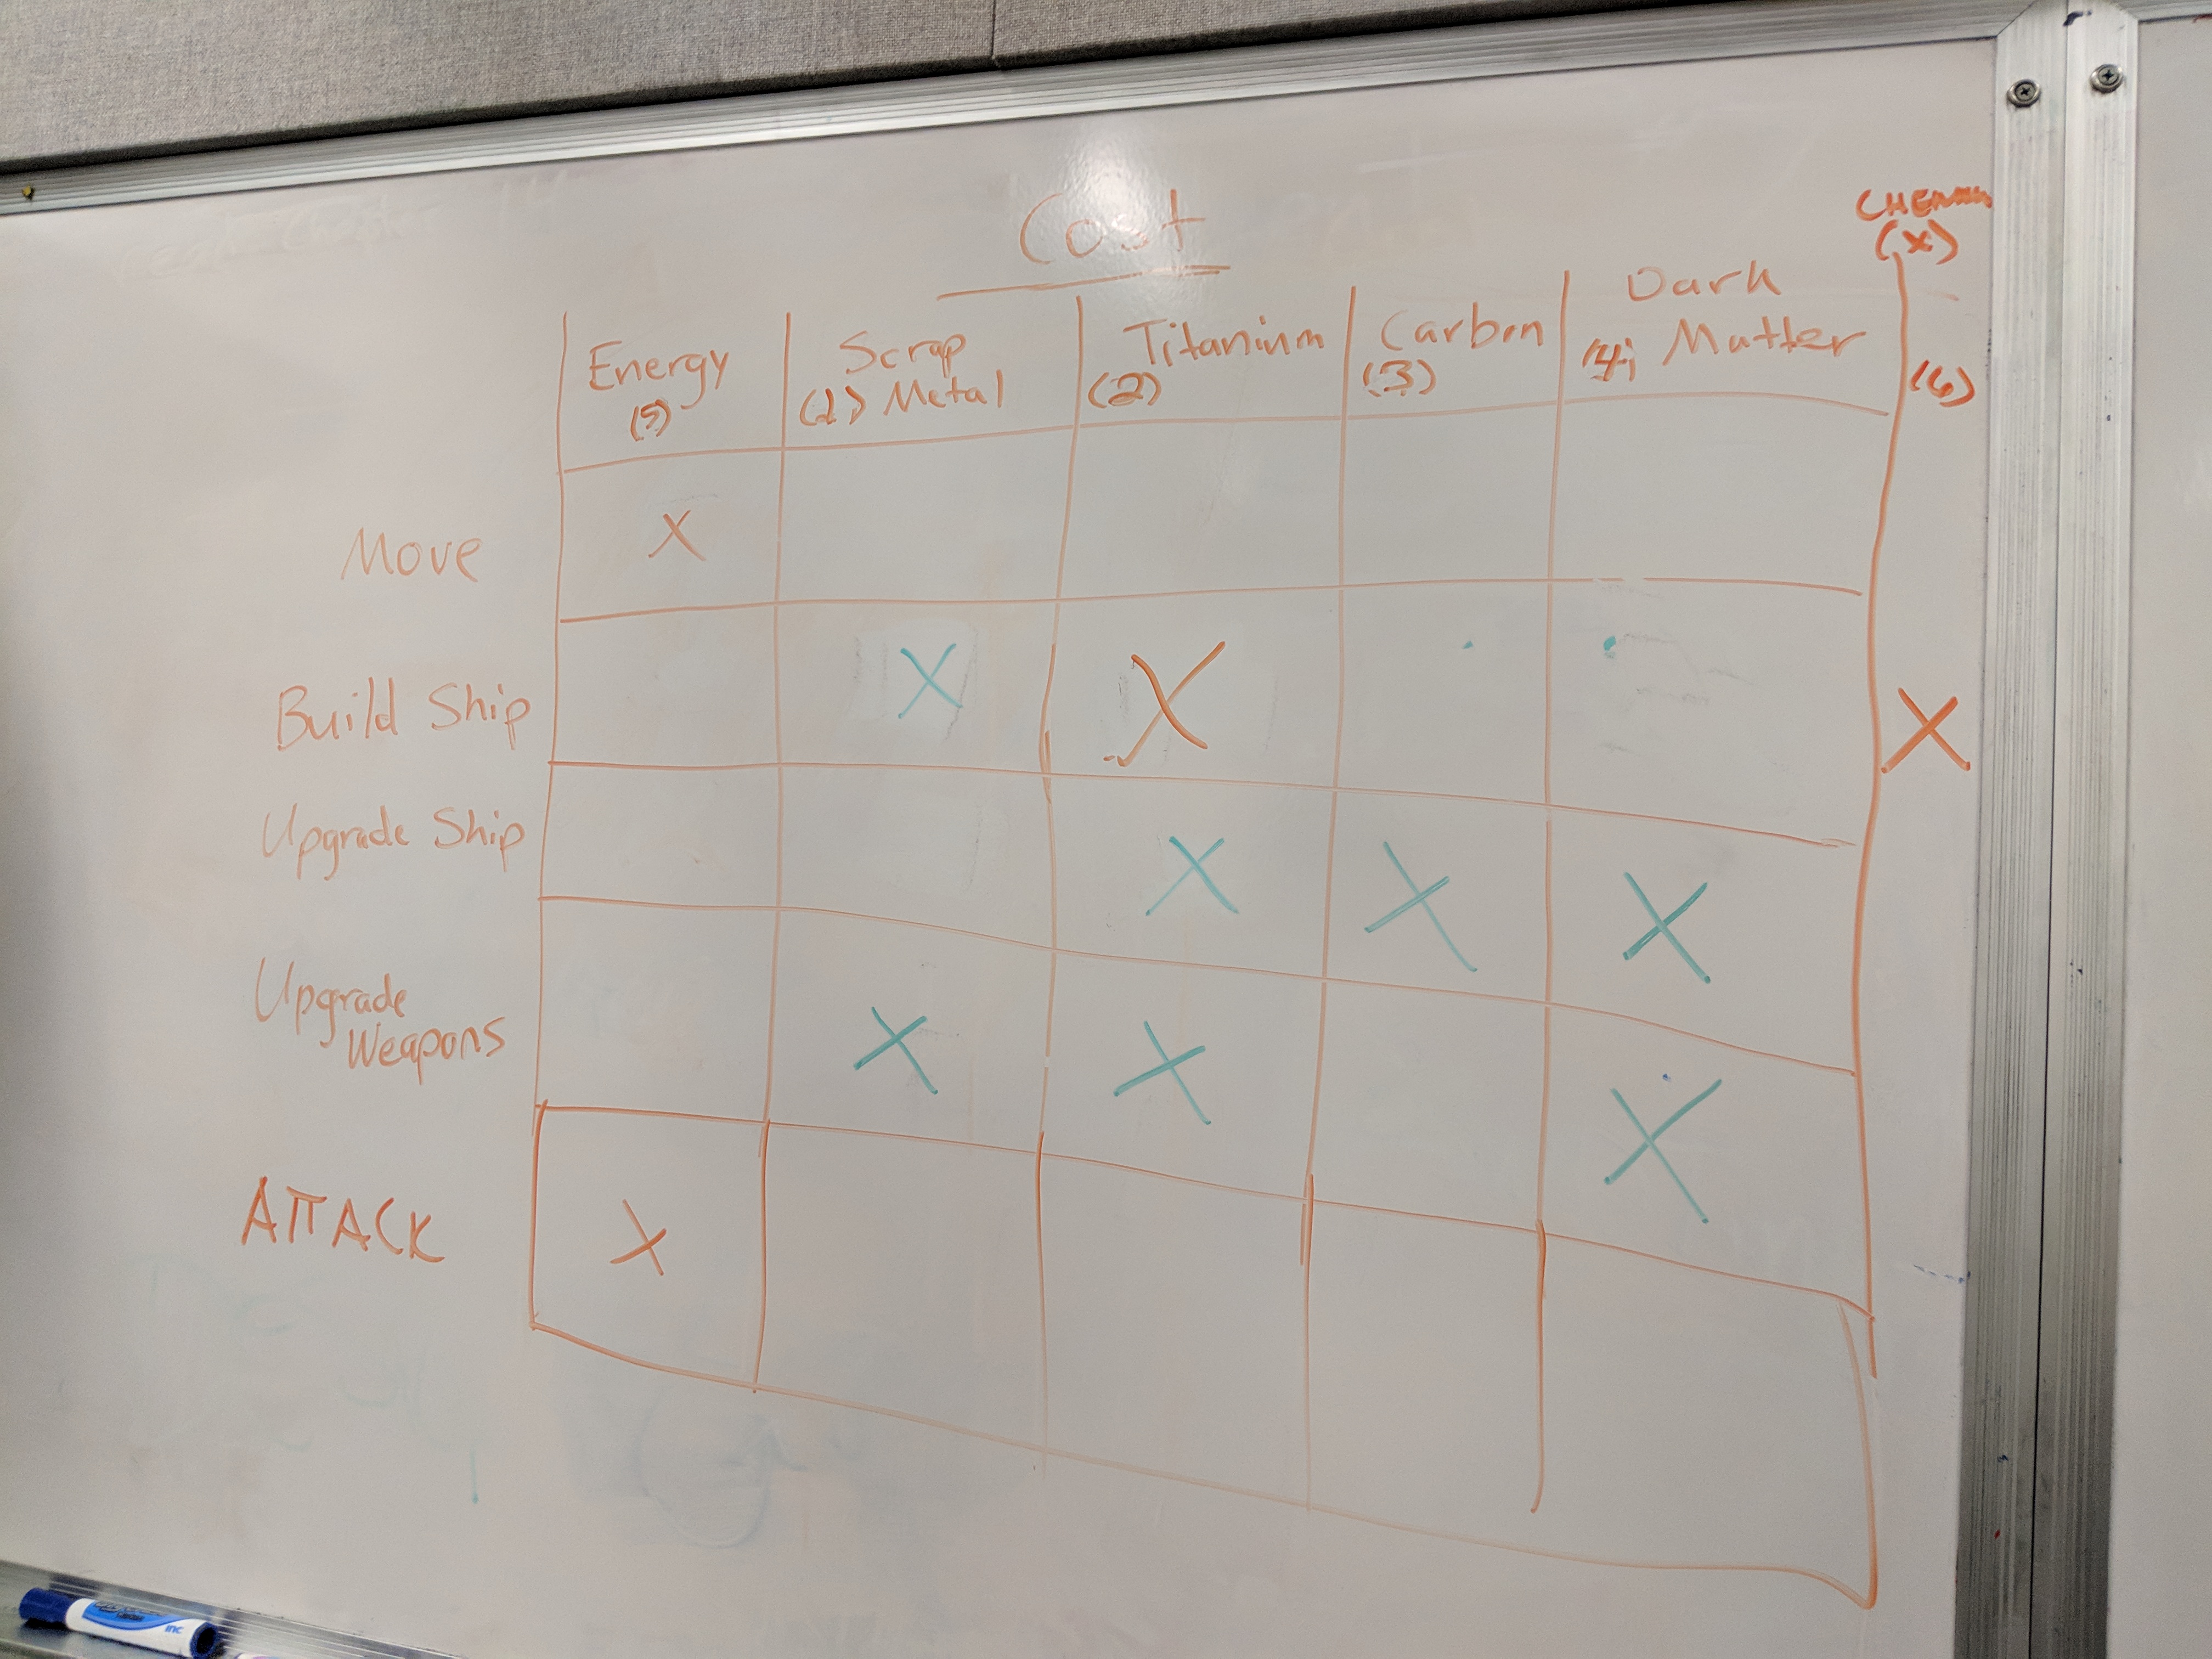 Cost
(x)
Energy
(5)
Scrap
(1) Metal
Titanium
(2)
Carbon
(3)
Dark
(4) Matter
(6)
Move
X
Build Ship
X
X
X
Upgrade Ship
X
X
X
Upgrade
Weapons
X
X
X
ATTACK
X